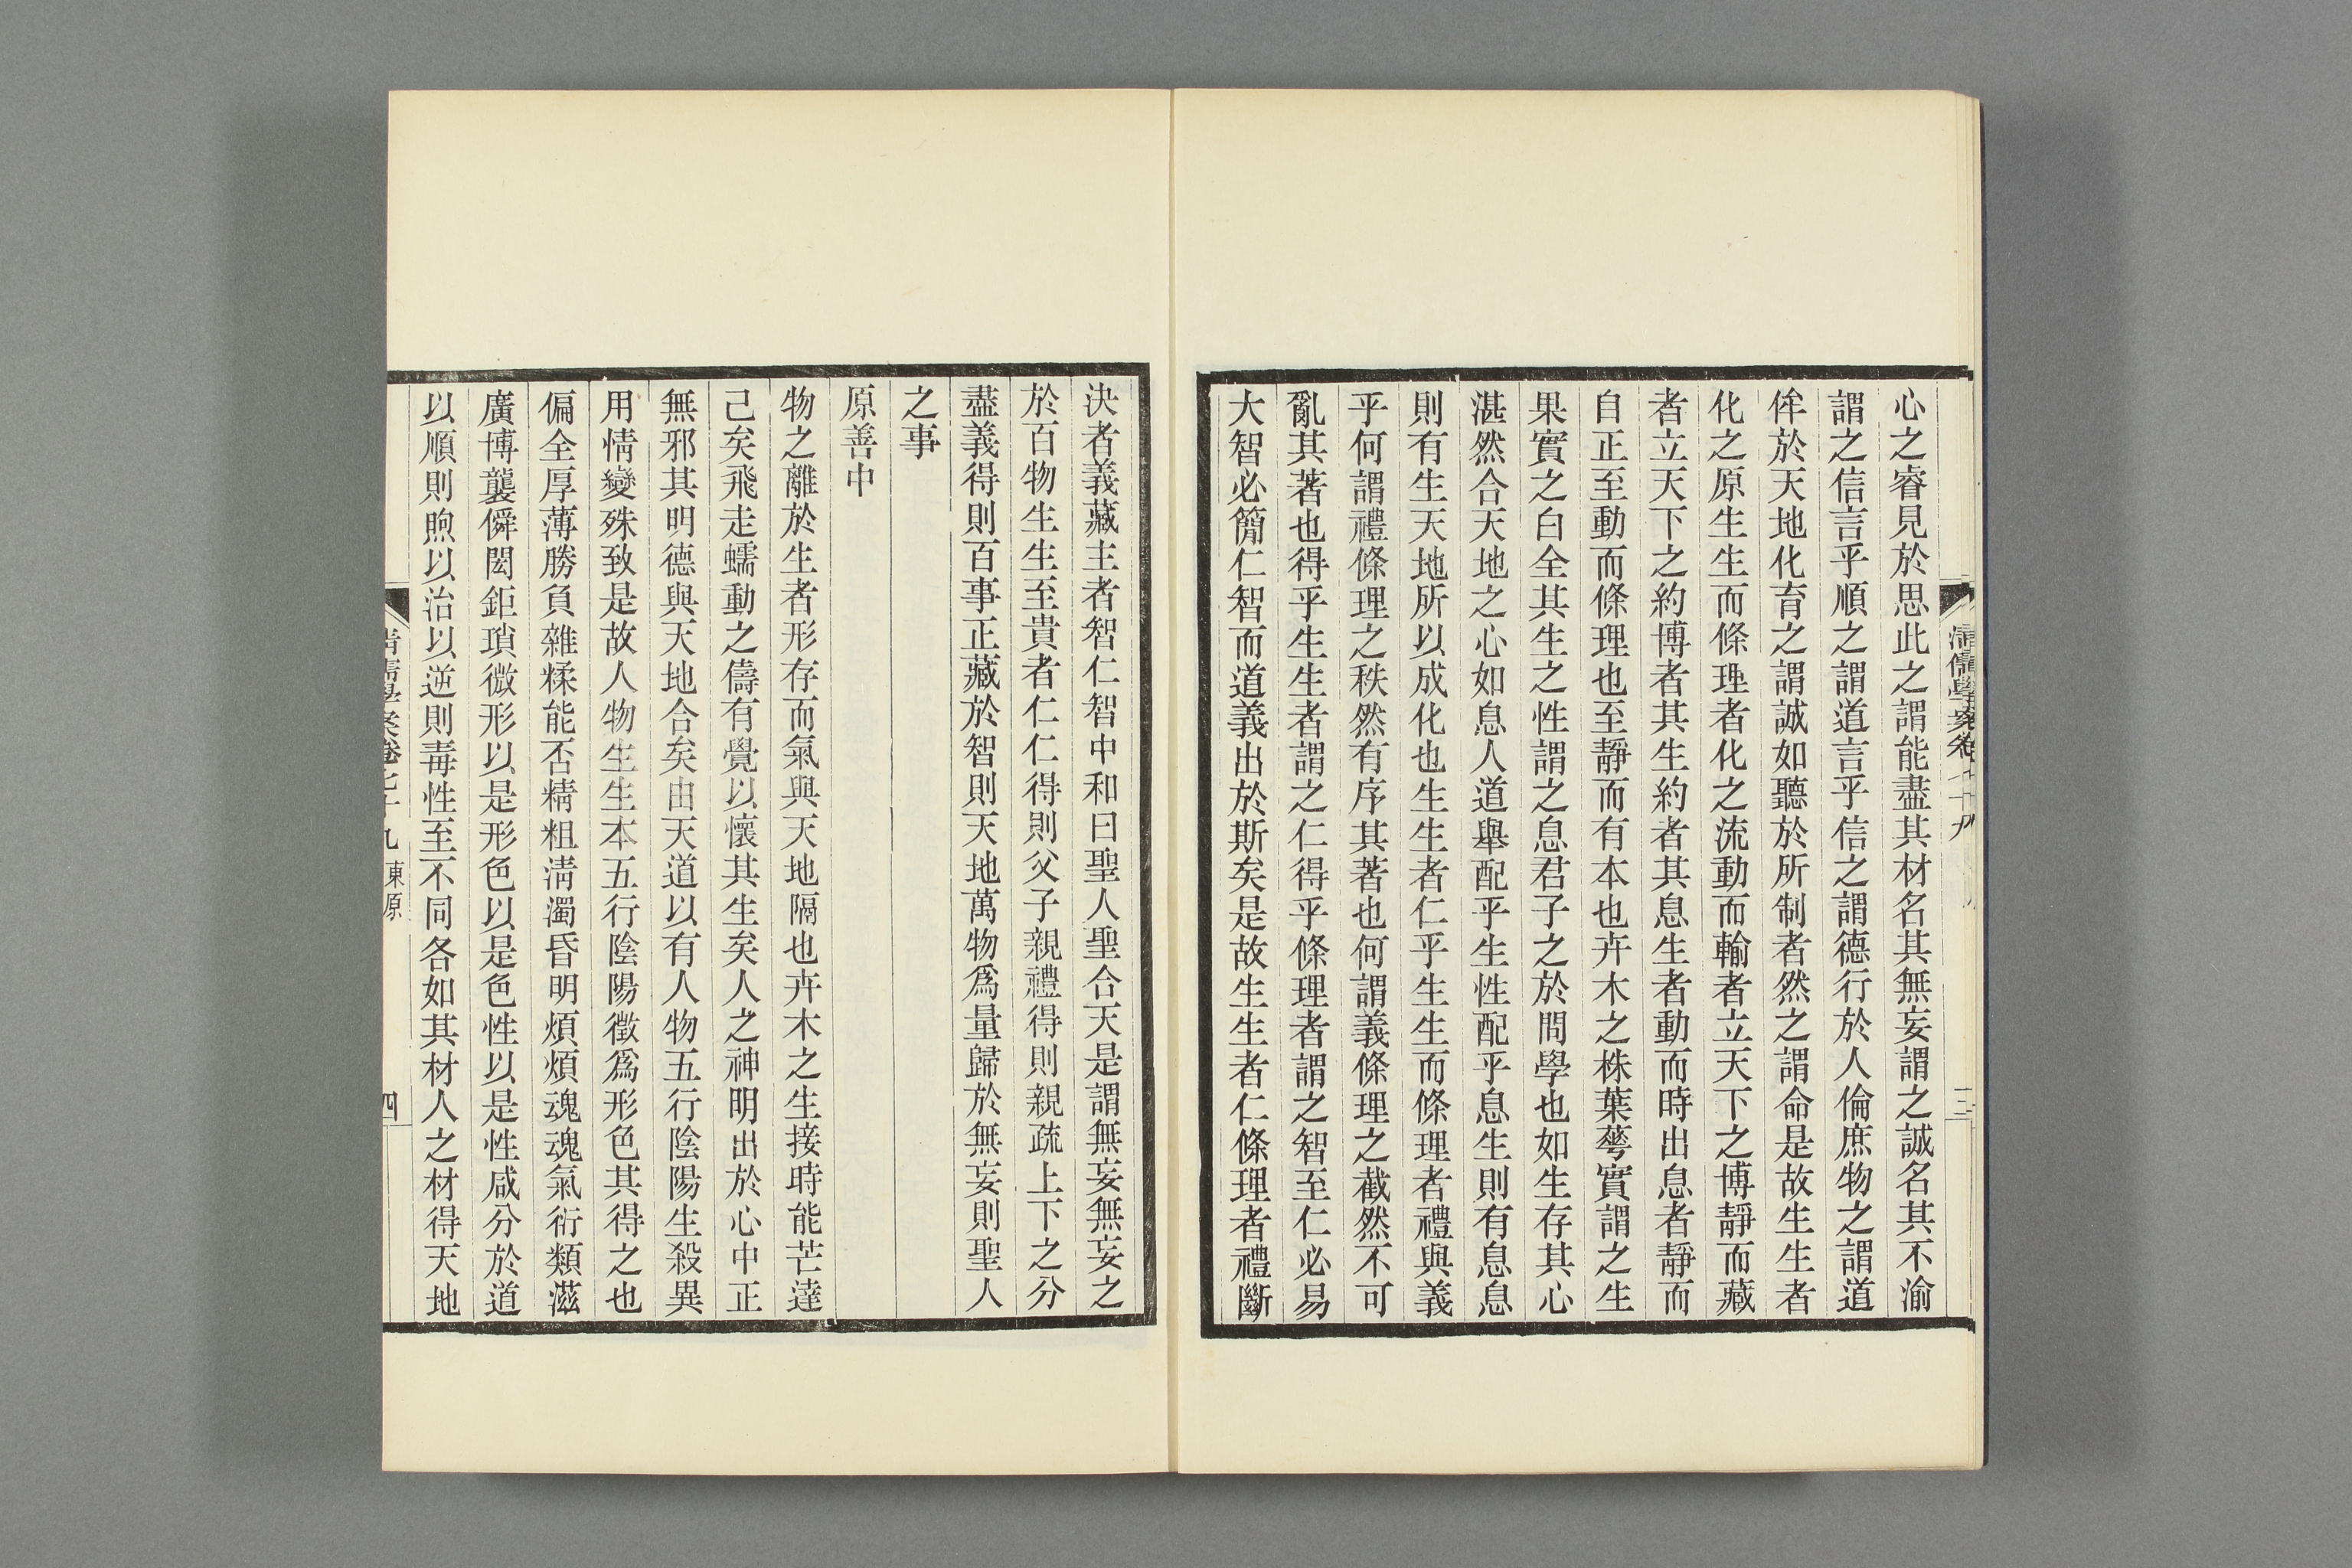 心之睿見於思此之謂能盡其材名其無妄謂之誠名其不渝
謂之信言乎順之謂道言乎信之謂德行於人倫庶物之謂道
侔於天地化育之謂誠如聽於所制者然之謂命是故生生者
化之原生生而條理者化之流動而輸者立天下之博靜而藏
者立天下之約博者其生約者其息生者動而時出息者靜而
自正至動而條理也至靜而有本也卉木之株葉蕚實謂之生
果實之白全其生之性謂之息君子之於問學也如生存其心
湛然合天地之心如息人道舉配乎生性配乎息生則有息息
則有生天地所以成化也生生者仁乎生生而條理者禮與義
乎何謂禮條理之秩然有序其著也何謂義條理之截然不可
亂其著也得乎生生者謂之仁得乎條理者謂之智至仁必易
大智必簡仁智而道義出於斯矣是故生生者仁條理者禮斷
決者義藏主者智仁智中和曰聖人聖合天是謂無妄無妄之
於百物生生至貴者仁仁得則父子親禮得則親疏上下之分
盡義得則百事正藏於智則天地萬物爲量歸於無妄則聖人
之事
原善中
物之離於生者形存而氣與天地隔也卉木之生接時能芒達
己矣飛走蠕動之儔有覺以懷其生矣人之神明出於心中正
無邪其明德與天地合矣由天道以有人物五行陰陽生殺異
用情變殊致是故人物生生本五行陰陽徵爲形色其得之也
偏全厚薄勝負雜糅能否精粗淸濁昏明煩煩魂魂氣衍類滋
廣博襲僢閎鉅瑣微形以是形色以是色性以是性咸分於道
以順則煦以治以逆則毒性至不同各如其材人之材得天地
清儒學案卷七十九 東原
四